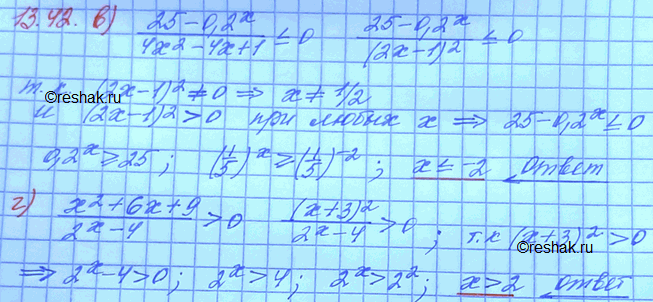 13.42. в) (25-0,2^x)/(4x²-4x+1) ≤ 0   (25-0,2^x)/(2x-1)² ≤ 0
т.к (2x-1)² ≠ 0 ⇒ x ≠ 1/2
©reshak.ru
и (2x-1)² > 0 при любых x ⇒ 25-0,2^x ≤ 0
0,2^x ≥ 25; (1/5)^x ≥ (1/5)^-2; x ≤ -2 ответ
г) (x²+6x+9)/(2^x-4) > 0   (x+3)²/(2^x-4) > 0; т.к (x+3)² > 0
©reshak.ru
⇒ 2^x-4>0; 2^x>4; 2^x>2²; x>2 ответ